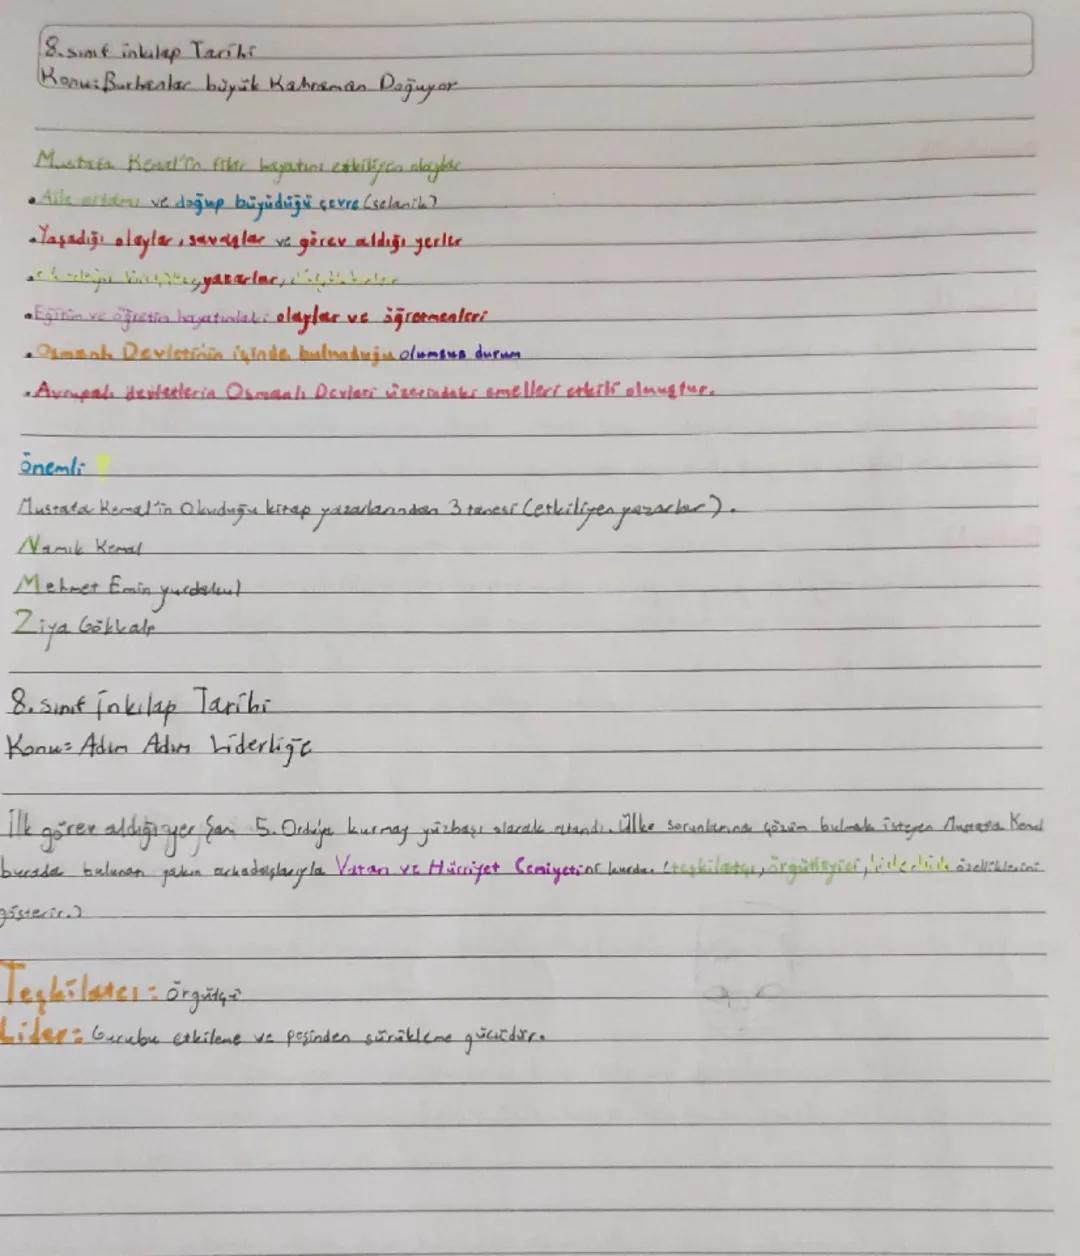 8.sınıf inkılap Tarihi
Konu: Buhranlar büyük Kahraman Doğuyor
Mustafa Kemal'in fikir hayatını etkiliyen olaylar
• Aile ortamı ve doğup büyüdüğü çevre (selanik)
• Yaşadığı olaylar, savaşlar ve görev aldığı yerler
yazarlar,
• Eğitim ve öğretim hayatındaki olaylar ve öğretmenleri
• Osmanlı Devletinin içinde bulunduğu olumsuz durum
• Avrupalı devletlerin Osmanlı Devleti üzerindeki emelleri etkili olmuştur.
önemli !
Mustafa Kemal'in Okuduğu kitap yazarlarından 3 tanesi (etkiliyen yazarlar).
Namık Kemal
Mehmet Emin yurdakul
Ziya Gökkalp
8. sınıf İnkılap Tarihi
Konu: Adım Adım Liderliğe
İlk görev aldığı yer Şam 5. Orduya kurmay yüzbaşı olarak atandı. Ülke sorunlarına çözüm bulmak isteyen Mustafa Kemal
burada bulunan yakın arkadaşlarıyla Vatan ve Hürriyet Cemiyetini kurdu. (teşkilatçı, örgütleyici, liderlik özelliklerini
gösterir.)
Teşkilatçı: örgütçü
Lider: Gurubu etkileme ve peşinden sürükleme gücüdür.